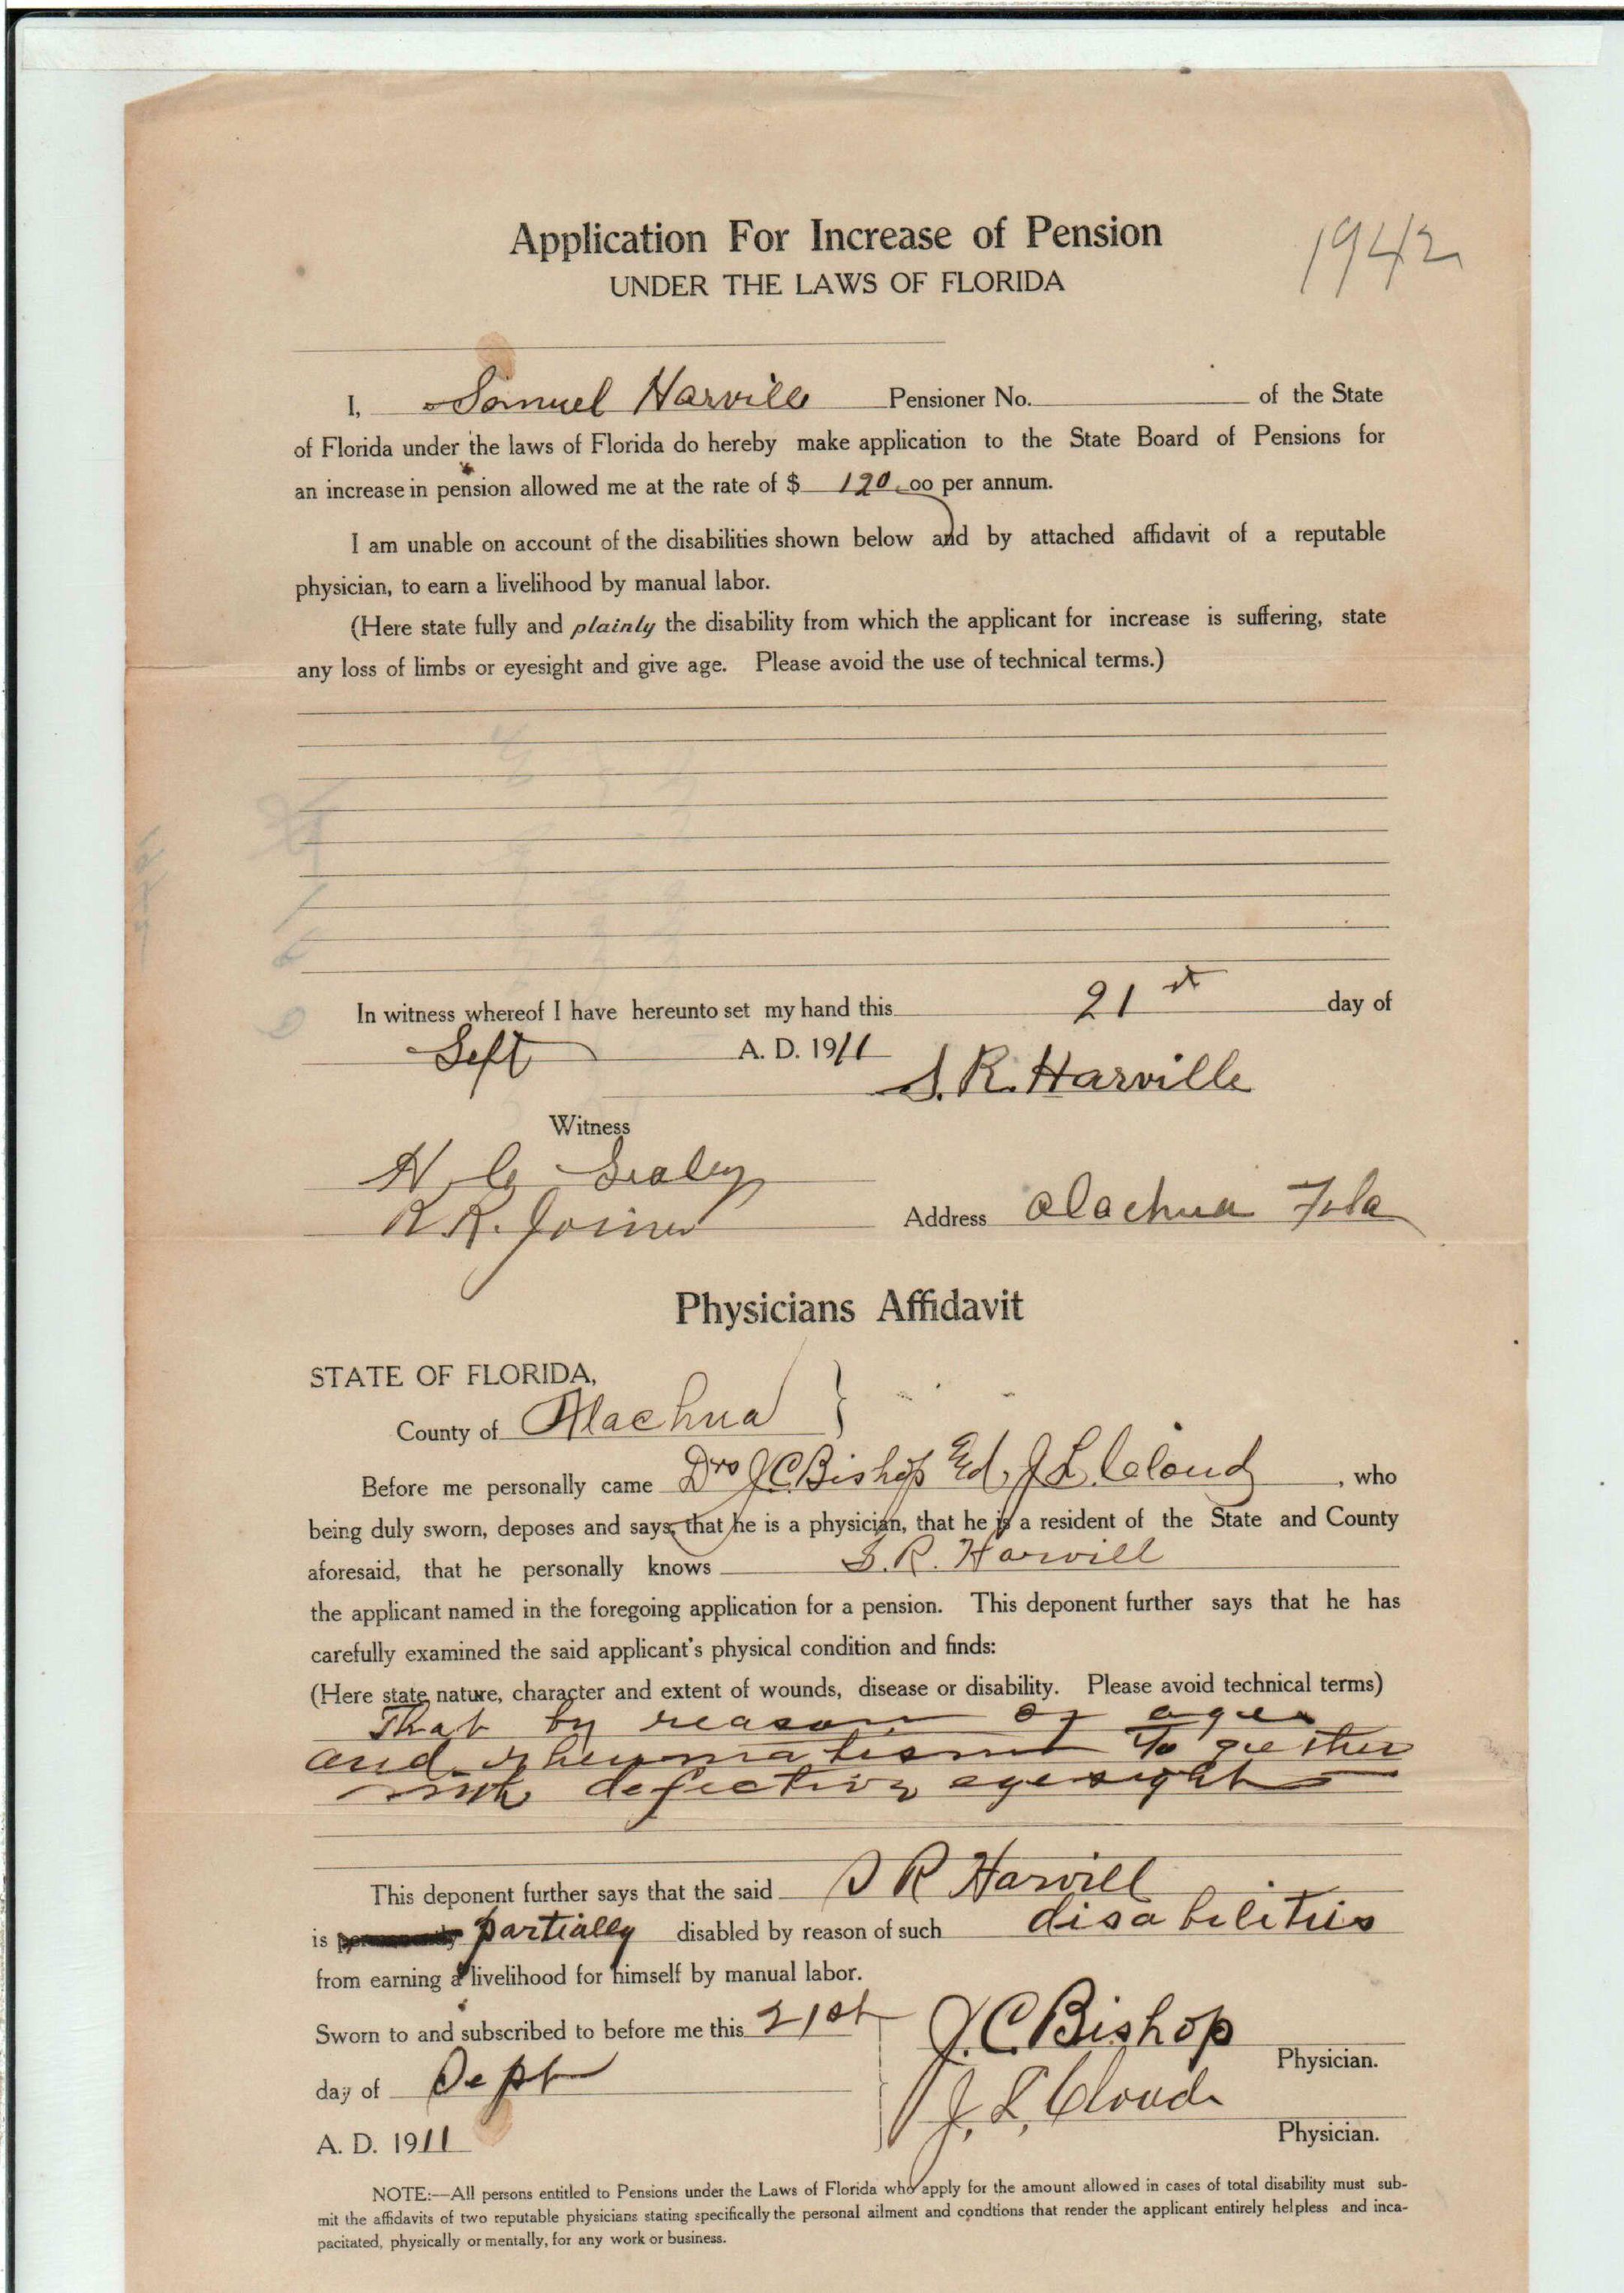 Application For Increase of Pension
1942
UNDER THE LAWS OF FLORIDA
I, Samuel Harvill Pensioner No. of the State
of Florida under the laws of Florida do hereby make application to the State Board of Pensions for
an increase in pension allowed me at the rate of $ 120.00 per annum.
I am unable on account of the disabilities shown below and by attached affidavit of a reputable
physician, to earn a livelihood by manual labor.
(Here state fully and plainly the disability from which the applicant for increase is suffering, state
any loss of limbs or eyesight and give age. Please avoid the use of technical terms.)
In witness whereof I have hereunto set my hand this 21st day of
Sept A. D. 1911
S. R. Harville
Witness
H. C.
R. R. Joiner
Address Alachua Fla
Physicians Affidavit
STATE OF FLORIDA,
County of Alachua }
Before me personally came Drs J C Bishop J L Cloud, who
being duly sworn, deposes and says, that he is a physician, that he is a resident of the State and County
aforesaid, that he personally knows S. R. Harvill
the applicant named in the foregoing application for a pension. This deponent further says that he has
carefully examined the said applicant's physical condition and finds:
(Here state nature, character and extent of wounds, disease or disability. Please avoid technical terms)
That by reason of age
and rheumatism to gether
with defective eyesight
This deponent further says that the said S R Harvill
is partially disabled by reason of such disabilities
from earning a livelihood for himself by manual labor.
Sworn to and subscribed to before me this 21st
J. C. Bishop
Physician.
day of Sept
J. L. Cloud
Physician.
A. D. 1911
NOTE:—All persons entitled to Pensions under the Laws of Florida who apply for the amount allowed in cases of total disability must sub-
mit the affidavits of two reputable physicians stating specifically the personal ailment and condtions that render the applicant entirely helpless and inca-
pacitated, physically or mentally, for any work or business.